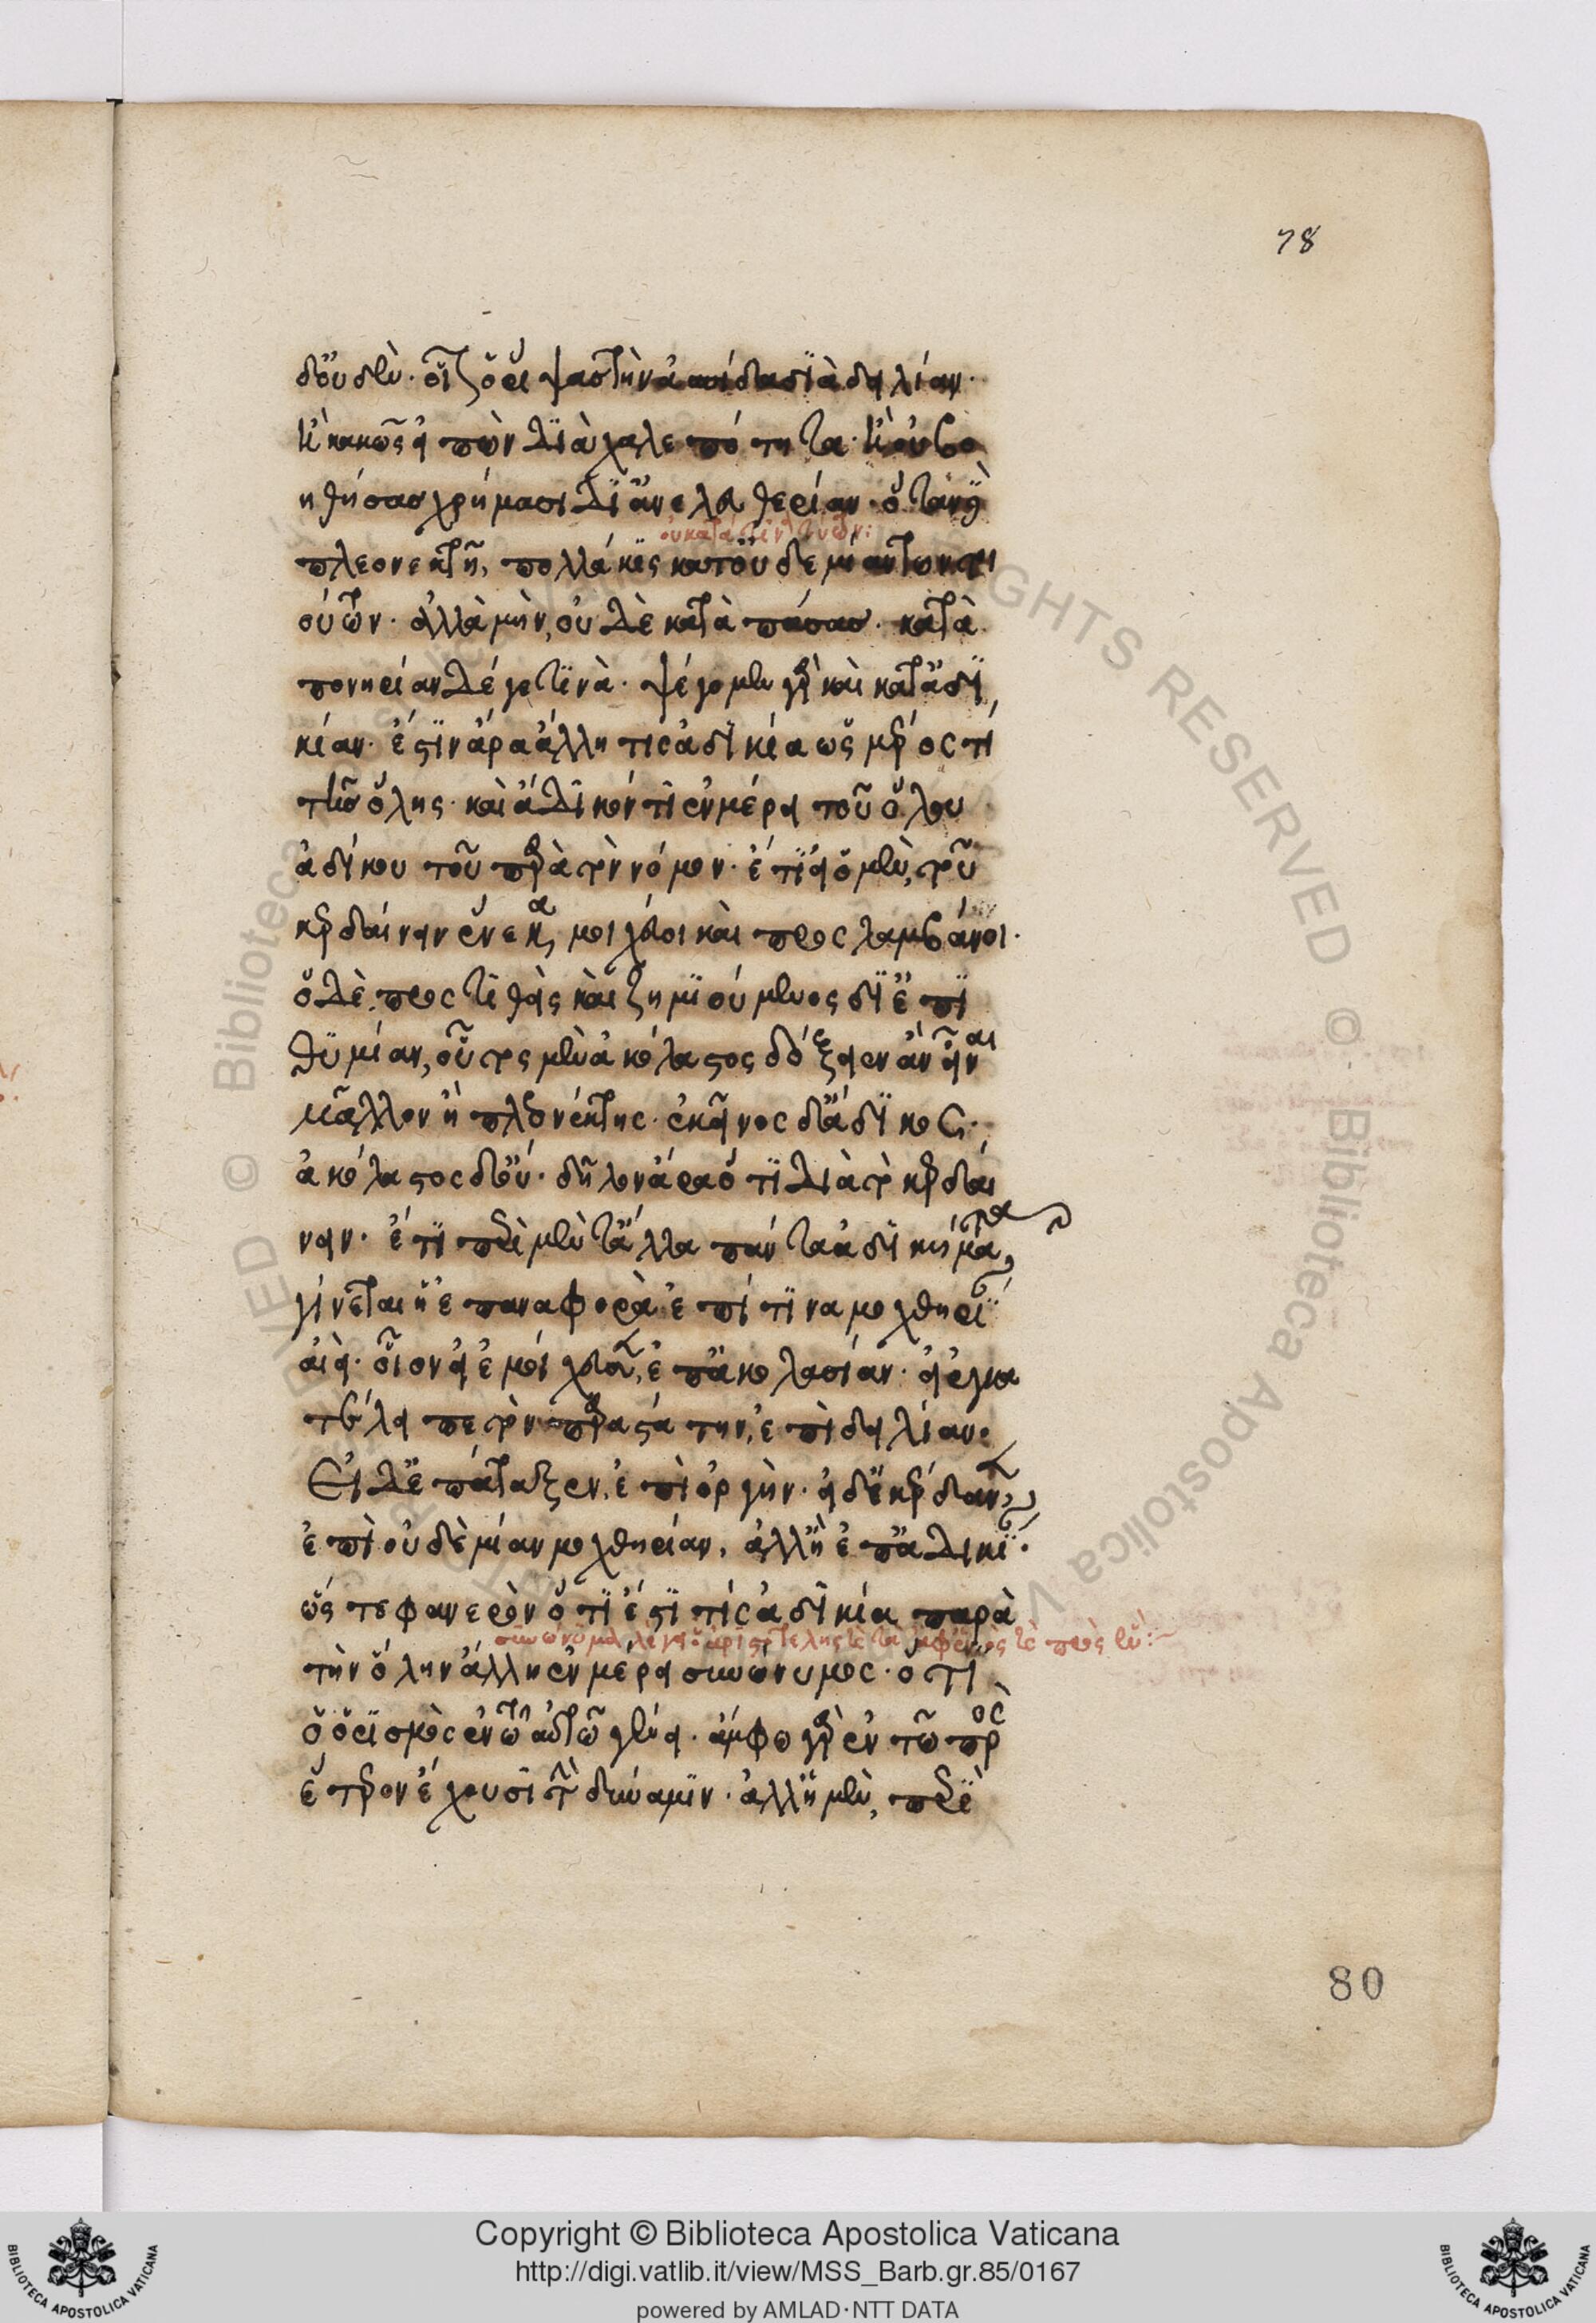 78
δ' οὐδέν· οἷον ὁ ῥίψας τὴν ἀσπίδα διὰ δειλίαν·
ἢ κακῶς εἰπὼν διὰ χαλεπότητα· ἢ οὐ βο
ηθήσας χρήμασι δι' ἀνελευθερίαν· ὅταν δὲ
οὐ κατὰ τὴν τοιούτων:
πλεονεκτῇ, πολλάκις κατ' οὐδεμίαν τῶν τοι
ούτων· ἀλλὰ μὴν, οὐδὲ κατὰ πάσας· κατὰ
πονηρίαν δέ γε τινὰ· ψέγομεν γὰρ καὶ κατ' ἀδι
κίαν· ἔστιν ἄρα ἄλλη τις ἀδικία ὡς μέρος τι
τῆς ὅλης· καὶ ἄδικόν τι ἐν μέρει τοῦ ὅλου
ἀδίκου τοῦ παρὰ τὸν νόμον· ἔτι εἰ ὁ μὲν, τοῦ
κερδαίνειν ἕνεκα, μοιχεύοι καὶ προσλαμβάνοι·
ὁ δὲ προστιθεὶς καὶ ζημιούμενος δι' ἐπι
θυμίαν, οὗτος μὲν ἀκόλαστος δόξειεν ἂν εἶναι
μᾶλλον ἢ πλεονέκτης· ἐκεῖνος δ' ἄδικος·
ἀκόλαστος δ' οὔ· δῆλον ἄρα ὅτι διὰ τὸ κερδαί
νειν· ἔτι περὶ μὲν τἄλλα πάντα ἀδικήματα,
γίνεται ἡ ἐπαναφορὰ ἐπί τινα μοχθηρί
αν ἀεὶ· οἷον εἰ ἐμοίχευσεν, ἐπ' ἀκολασίαν· εἰ ἐγκα
τέλειπε τὸν παραστάτην, ἐπὶ δειλίαν·
Εἰ δ' ἐπάταξεν, ἐπὶ ὀργήν· εἰ δ' ἐκέρδανεν,
ἐπὶ οὐδεμίαν μοχθηρίαν, ἀλλ' ἢ ἐπ' ἀδικίαν·
ὥστε φανερὸν ὅτι ἔστι τις ἀδικία παρὰ
συνώνυμα λέγει ὁ ἀριστοτέλης τὰ ἀφ' ἑνὸς τε πρὸς ἕν:~
τὴν ὅλην ἄλλη ἐν μέρει συνώνυμος· ὅτι
ὁ ὁρισμὸς ἐν τῷ αὐτῷ γένει· ἄμφω γὰρ ἐν τῷ πρὸς
ἕτερον ἔχουσι τὴν δύναμιν· ἀλλ' ἡ μὲν, περὶ
80
Copyright © Biblioteca Apostolica Vaticana
http://digi.vatlib.it/view/MSS_Barb.gr.85/0167
powered by AMLAD·NTT DATA